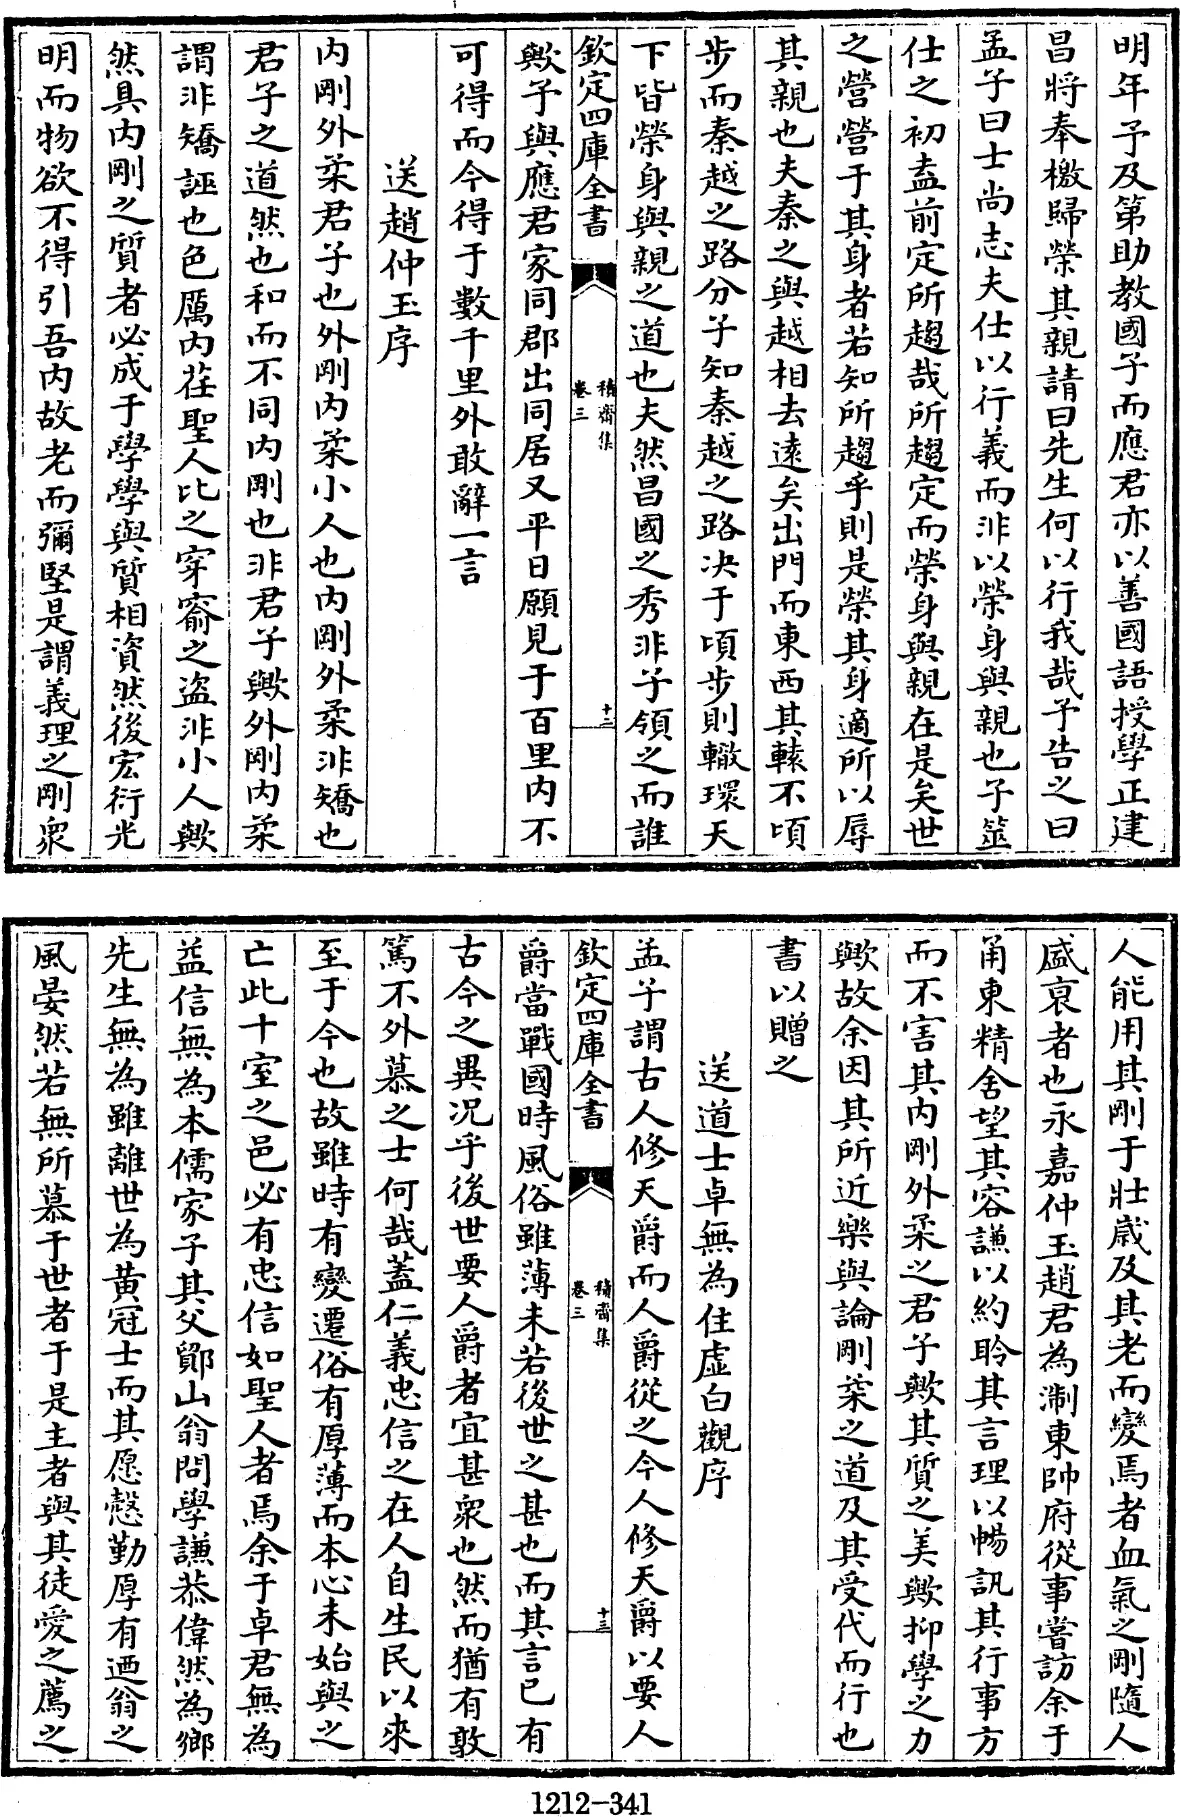 明年予及第助教國子而應君亦以善國語授學正建
昌將奉檄歸榮其親請曰先生何以行我哉予告之曰
孟子曰士尚志夫仕以行義而非以榮身與親也子筮
仕之初盍前定所趨哉所趨定而榮身與親在是矣世
之營營于其身者若知所趨乎則是榮其身適所以辱
其親也夫秦之與越相去遠矣出門而東西其轅不頃
步而秦越之路分子知秦越之路决于頃步則轍環天
下皆榮身與親之道也夫然昌國之秀非子領之而誰
欽定四庫全書
積齋集
卷三
十二
歟予與應君家同郡出同居又平日願見于百里内不
可得而今得于數千里外敢辭一言
送趙仲玉序
内剛外柔君子也外剛内柔小人也内剛外柔非矯也
君子之道然也和而不同内剛也非君子歟外剛内柔
謂非矯誣也色厲内荏聖人比之穿窬之盜非小人歟
然具内剛之質者必成于學學與質相資然後宏衍光
明而物欲不得引吾内故老而彌堅是謂義理之剛衆
人能用其剛于壯歲及其老而變焉者血氣之剛隨人
盛衰者也永嘉仲玉趙君為淛東帥府從事嘗訪余于
甬東精舍望其容謙以約聆其言理以暢訊其行事方
而不害其内剛外柔之君子歟其質之美歟抑學之力
歟故余因其所近樂與論剛柔之道及其受代而行也
書以贈之
送道士卓無為住虛白觀序
孟子謂古人修天爵而人爵從之今人修天爵以要人
欽定四庫全書
積齋集
卷三
十三
爵當戰國時風俗雖薄未若後世之甚也而其言已有
古今之異况乎後世要人爵者宜甚衆也然而猶有敦
篤不外慕之士何哉蓋仁義忠信之在人自生民以來
至于今也故雖時有變遷俗有厚薄而本心未始與之
亡此十室之邑必有忠信如聖人者焉余于卓君無為
益信無為本儒家子其父鄮山翁問學謙恭偉然為鄉
先生無為雖離世為黄冠士而其愿慤勤厚有迺翁之
風晏然若無所慕于世者于是主者與其徒愛之薦之
1212-341